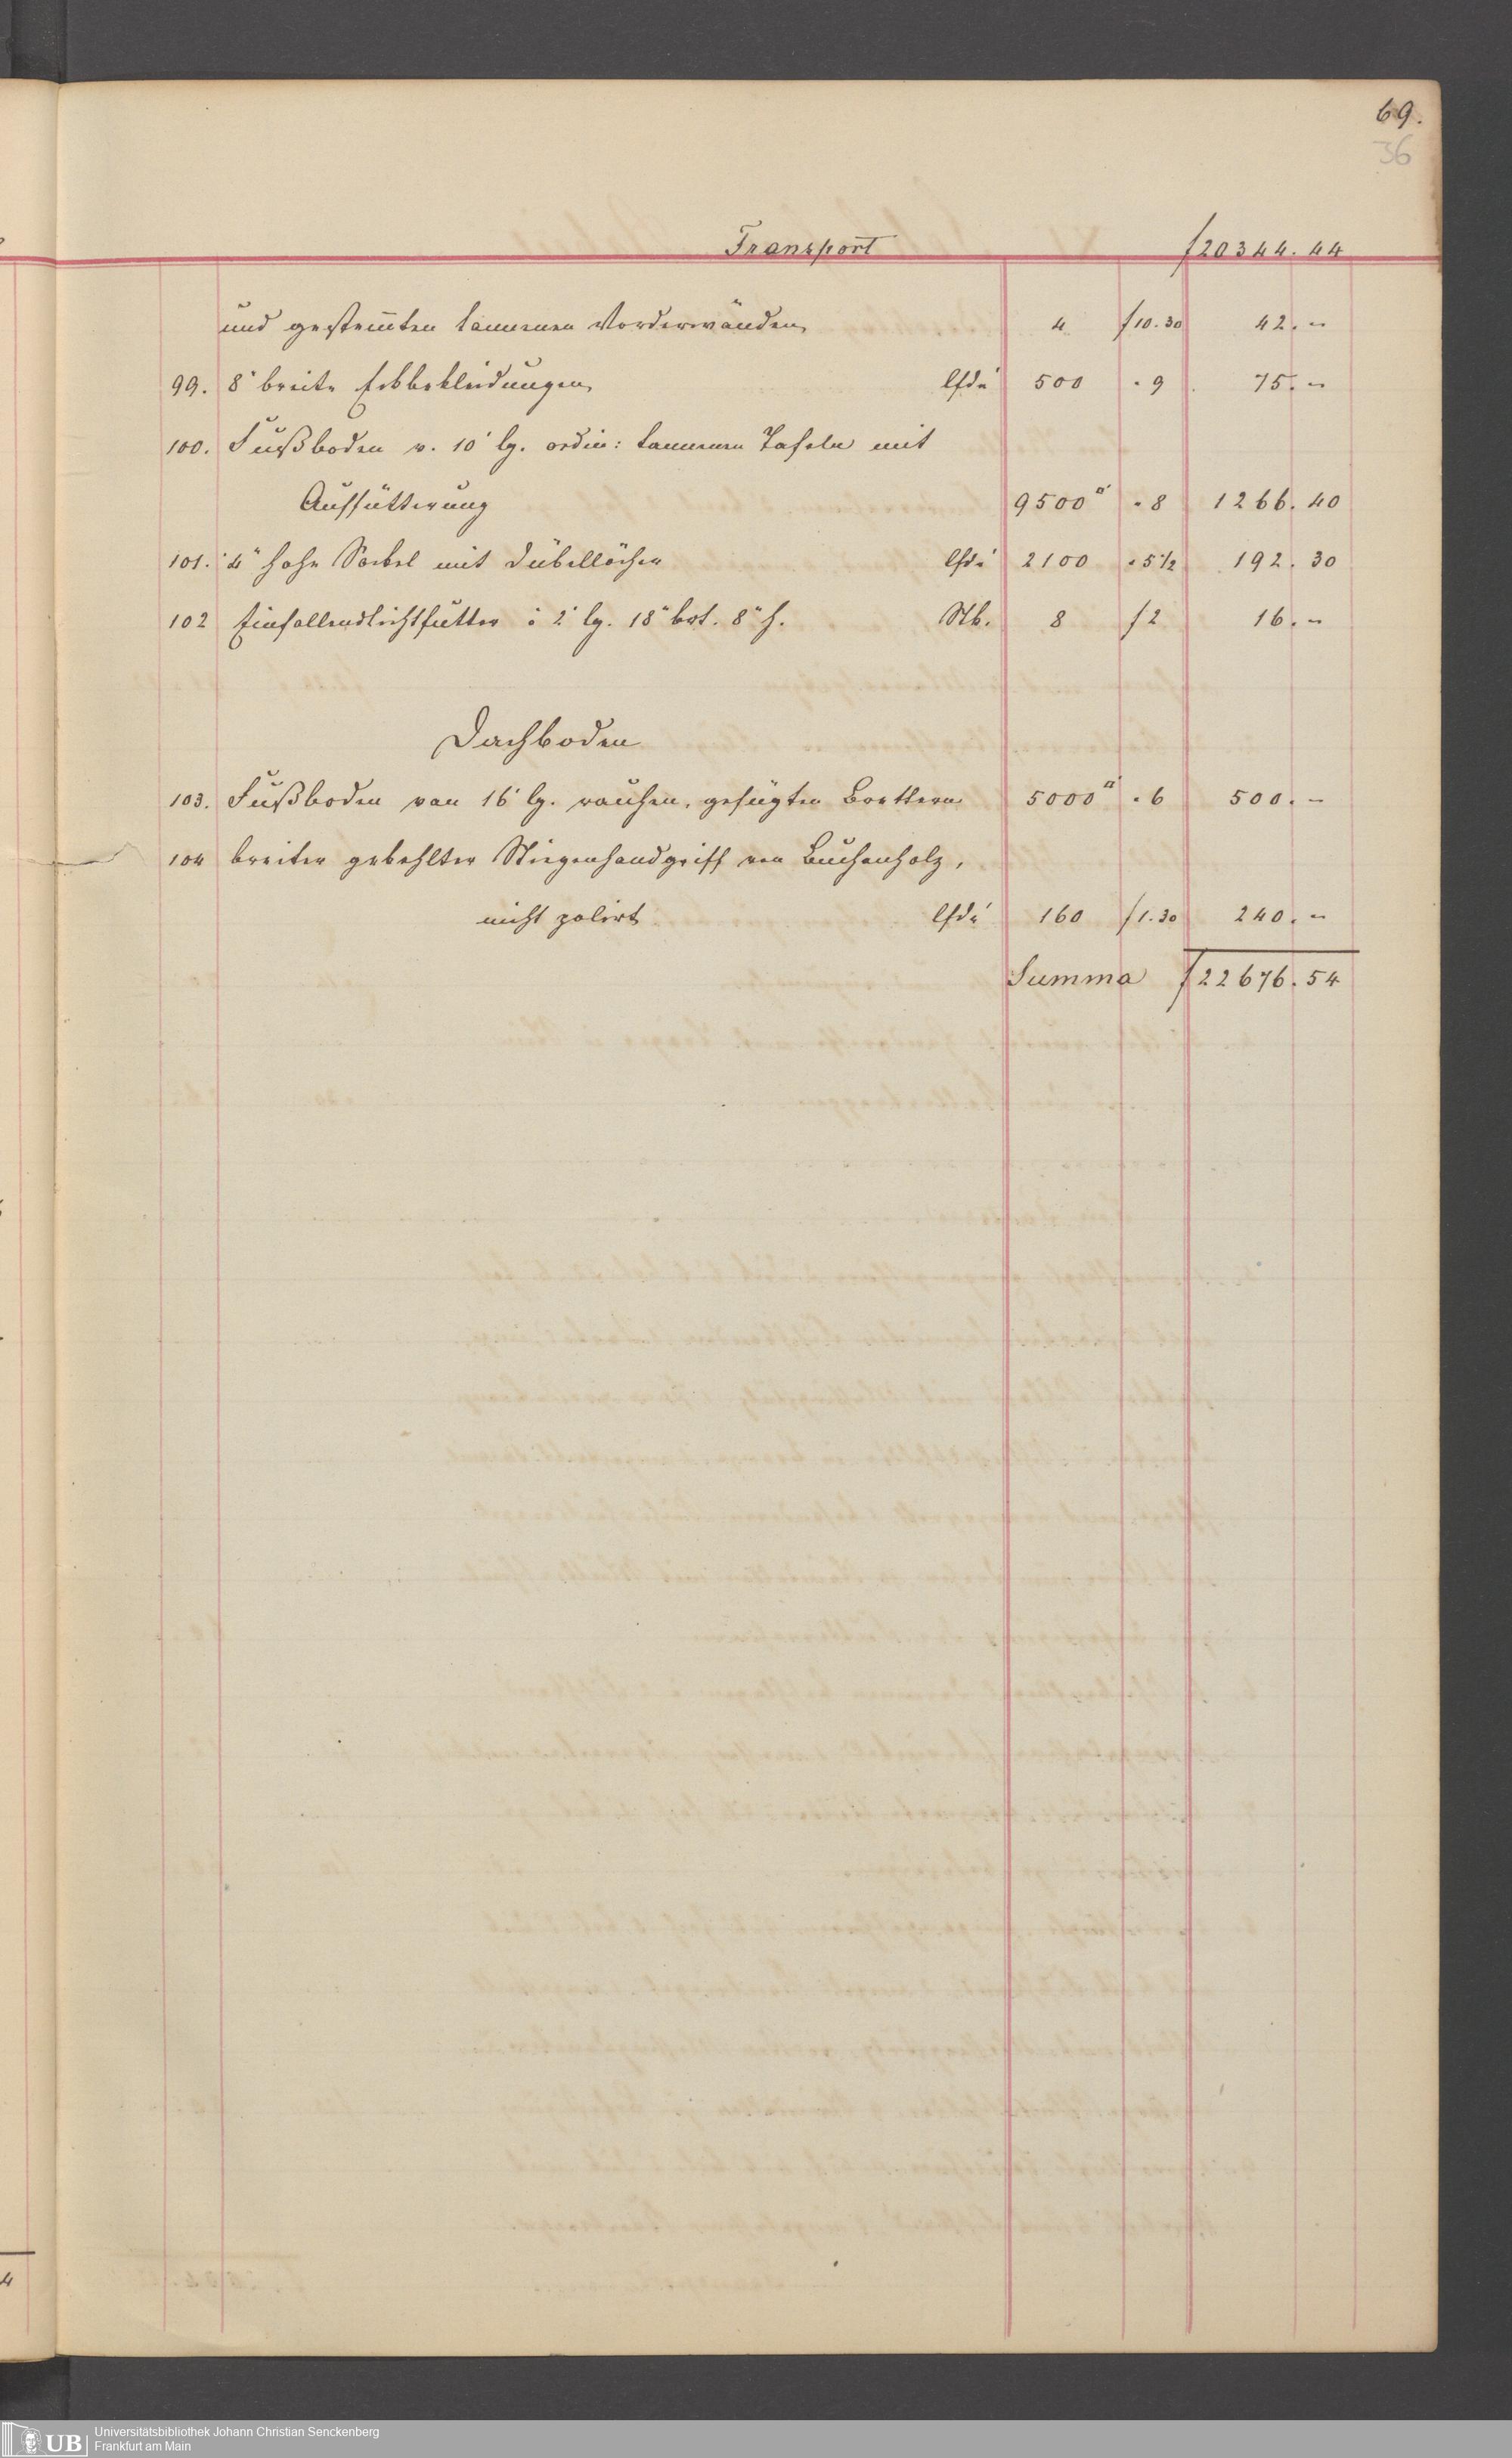 69.
36
Transport f 20344. 44
und gestemten tannenen Vorderwänden 4 f 10.30 42. –
99. 8" breite Eckbekleidungen lfd. ' 500 " 9 75. –
100. Fußboden v. 10' lg. ordin: tannenen Tafeln mit
Auffütterung 9500 □' " 8 1266. 40
101. 4" hohe Sockel mit Dübellöcher lfd. ' 2100 " 5 1/2 192. 30
102 Einfallendlichtfutter à 2' lg. 18" brt. 8" h. Stk. 8 f 2 16. –
Dachboden
103. Fußboden von 16' lg. rauhen, gefügten Brettern 5000 □' " 6 500. –
104 breiter gekehlter Stiegenhandgriff von Buchenholz,
nicht polirt lfd. ' 160 f 1.30 240. –
Summa f 22676. 54
UB Universitätsbibliothek Johann Christian Senckenberg
Frankfurt am Main